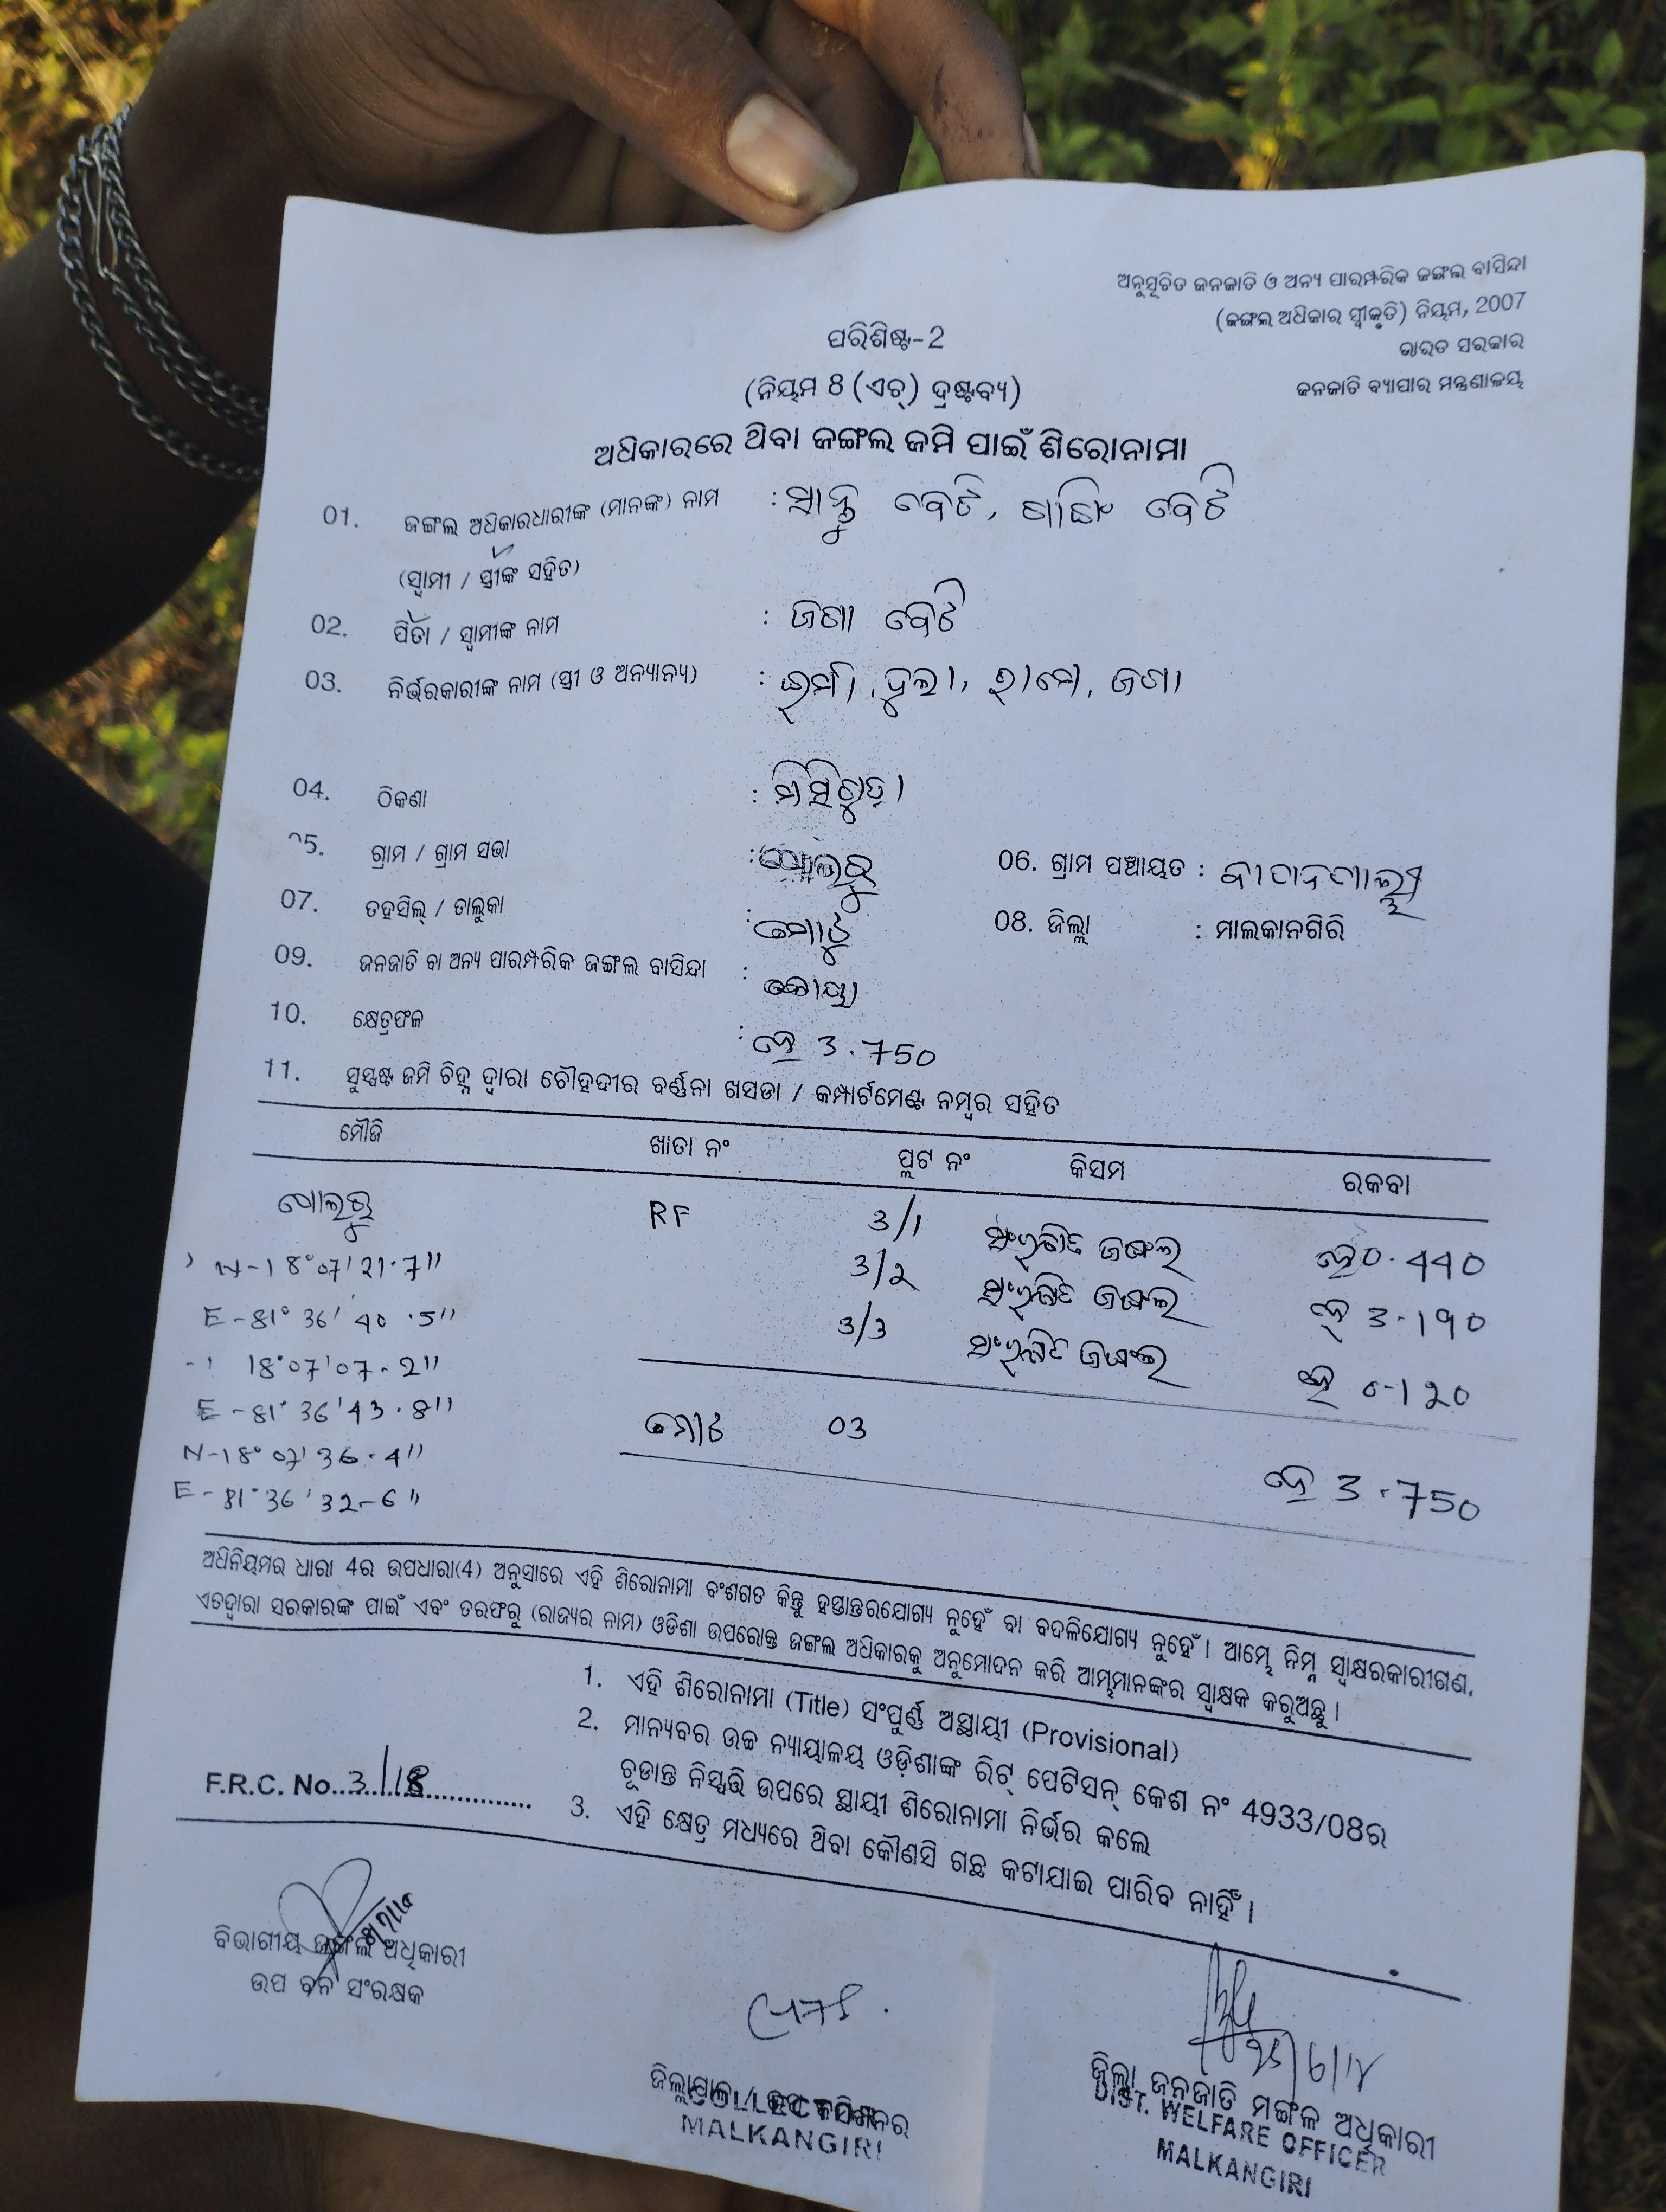 ଅନୁସୂଚିତ ଜନଜାତି ଓ ଅନ୍ୟ ପାରମ୍ପରିକ ଜଙ୍ଗଲ ବାସିନ୍ଦା
(ଜଙ୍ଗଲ ଅଧିକାର ସ୍ୱୀକୃତି) ନିୟମ, 2007
ଭାରତ ସରକାର
ଜନଜାତି ବ୍ୟାପାର ମନ୍ତ୍ରଣାଳୟ
ପରିଶିଷ୍ଟ-2
(ନିୟମ 8 (ଏଚ୍) ଦ୍ରଷ୍ଟବ୍ୟ)
ଅଧିକାରରେ ଥିବା ଜଙ୍ଗଲ ଜମି ପାଇଁ ଶିରୋନାମା
01. ଜଙ୍ଗଲ ଅଧିକାରଧାରୀଙ୍କ (ମାନଙ୍କ) ନାମ : ବେଟି, ବେଟି
(ସ୍ୱାମୀ / ସ୍ତ୍ରୀଙ୍କ ସହିତ)
02. ପିତା / ସ୍ୱାମୀଙ୍କ ନାମ : ଜଗା ବେଟି
03. ନିର୍ଭରକାରୀଙ୍କ ନାମ (ସ୍ତ୍ରୀ ଓ ଅନ୍ୟାନ୍ୟ) : ଇର୍ମା, ଦୁଲା, ରାମେ, ଜଗା
04. ଠିକଣା :
05. ଗ୍ରାମ / ଗ୍ରାମ ସଭା : ପୋଲରୁ 06. ଗ୍ରାମ ପଞ୍ଚାୟତ :
07. ତହସିଲ୍ / ତାଲୁକା : ମୋଟୁ 08. ଜିଲ୍ଲା : ମାଲକାନଗିରି
09. ଜନଜାତି ବା ଅନ୍ୟ ପାରମ୍ପରିକ ଜଙ୍ଗଲ ବାସିନ୍ଦା : କୋୟା
10. କ୍ଷେତ୍ରଫଳ : ହେ 3.750
11. ସୁସ୍ପଷ୍ଟ ଜମି ଚିହ୍ନ ଦ୍ୱାରା ଚୌହଦୀର ବର୍ଣ୍ଣନା ଖସଡା / କମ୍ପାର୍ଟମେଣ୍ଟ ନମ୍ବର ସହିତ
ମୌଜି ଖାତା ନଂ ପ୍ଲଟ ନଂ କିସମ ରକବା
ପୋଲରୁ RF 3/1 ସଂରକ୍ଷିତ ଜଙ୍ଗଲ ହେ 0.440
N-18°07'21.7" 3/2 ସଂରକ୍ଷିତ ଜଙ୍ଗଲ ହେ 3-190
E-81°36'40.5" 3/3 ସଂରକ୍ଷିତ ଜଙ୍ଗଲ ହେ 0-120
18°07'07-2"
E-81°36'43.8" ମୋଟ 03 ହେ 3.750
N-18°07'36.4"
E-81°36'32-6"
ଅଧିନିୟମର ଧାରା 4ର ଉପଧାରା(4) ଅନୁସାରେ ଏହି ଶିରୋନାମା ବଂଶଗତ କିନ୍ତୁ ହସ୍ତାନ୍ତରଯୋଗ୍ୟ ନୁହେଁ ବା ବଦଳିଯୋଗ୍ୟ ନୁହେଁ। ଆମ୍ଭେ ନିମ୍ନ ସ୍ୱାକ୍ଷରକାରୀଗଣ,
ଏତଦ୍ୱାରା ସରକାରଙ୍କ ପାଇଁ ଏବଂ ତରଫରୁ (ରାଜ୍ୟର ନାମ) ଓଡିଶା ଉପରୋକ୍ତ ଜଙ୍ଗଲ ଅଧିକାରକୁ ଅନୁମୋଦନ କରି ଆମ୍ଭମାନଙ୍କର ସ୍ୱାକ୍ଷକ କରୁଅଛୁ।
1. ଏହି ଶିରୋନାମା (Title) ସଂପୁର୍ଣ୍ଣ ଅସ୍ଥାୟୀ (Provisional)
2. ମାନ୍ୟବର ଉଚ୍ଚ ନ୍ୟାୟାଳୟ ଓଡ଼ିଶାଙ୍କ ରିଟ୍ ପେଟିସନ୍ କେଶ ନଂ 4933/08ର
ଚୂଡାନ୍ତ ନିସ୍ପତ୍ତି ଉପରେ ସ୍ଥାୟୀ ଶିରୋନାମା ନିର୍ଭର କଲେ
F.R.C. No. 3/18
3. ଏହି କ୍ଷେତ୍ର ମଧ୍ୟରେ ଥିବା କୌଣସି ଗଛ କଟାଯାଇ ପାରିବ ନାହିଁ।
ବିଭାଗୀୟ ଜଙ୍ଗଲ ଅଧିକାରୀ
ଉପ ବନ ସଂରକ୍ଷକ
COLLECTOR
MALKANGIRI
ଜିଲ୍ଲା ଜନଜାତି ମଙ୍ଗଳ ଅଧିକାରୀ
DIST. WELFARE OFFICER
MALKANGIRI